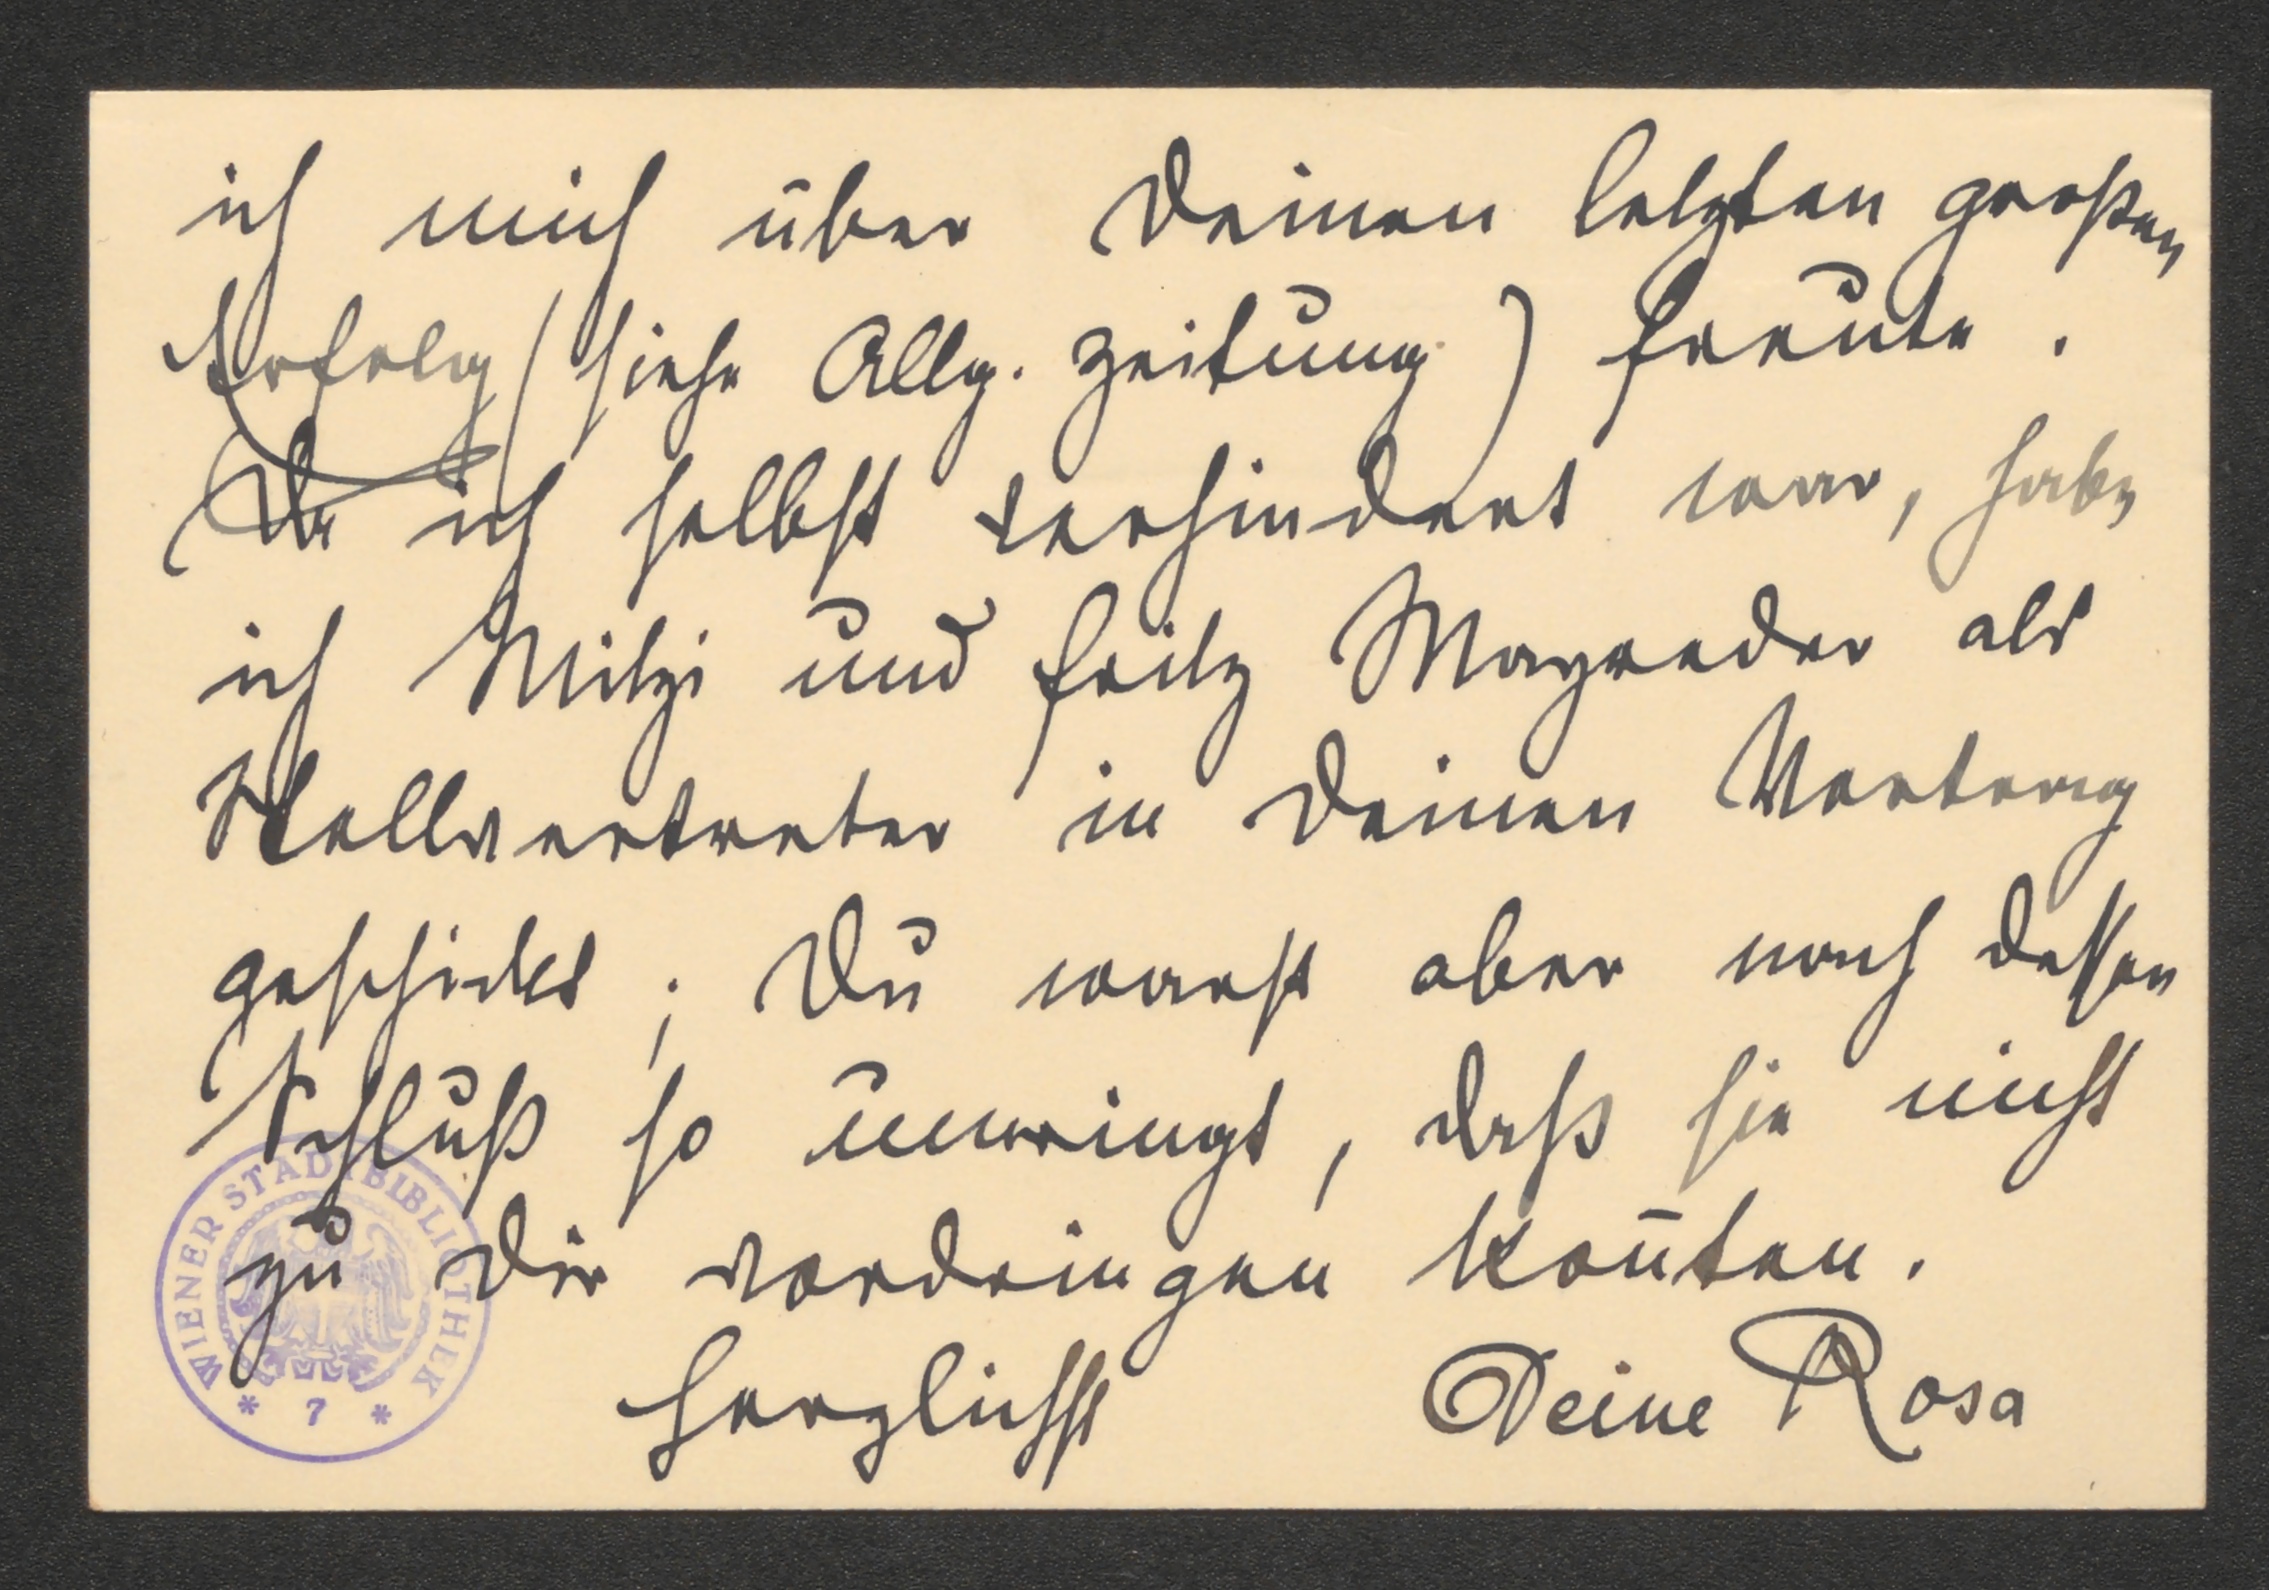 ich mich über Deinen letzten großen
Erfolg (siehe Allg. Zeitung) freute.
Da ich selbst verhindert war, habe
ich Mitzi und Fritz Mayreder als
Stellvertreter in Deinen Vortrag
geschickt; Du warst aber nach dessen
Schluß so umringt, daß sie nicht
zu Dir vordringen kon̄ten.
Herzlichst Deine Rosa
WIENER STADTBIBLIOTHEK
* 7 *